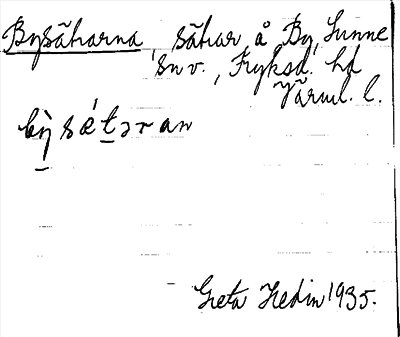 Bysätrarna, sätrar å By, Sunne
snv., Fryksd. hd
Värml. l.
bỳsǽtəran
Greta Hedin 1935.